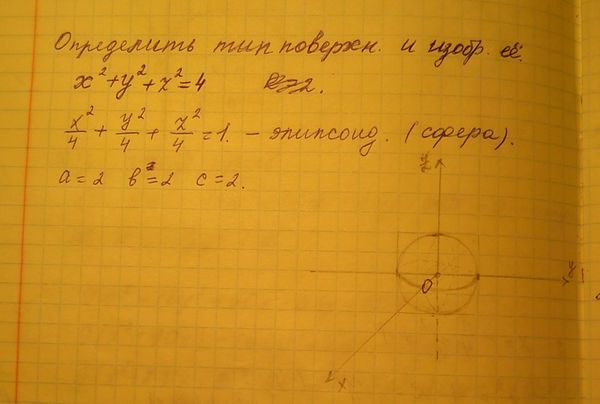 Определить тип поверхн. и изобр. её.
x²+y²+z²=4
x²/4 + y²/4 + z²/4 = 1. – эллипсоид. (сфера).
a=2 в=2 c=2.
z
y
O
x